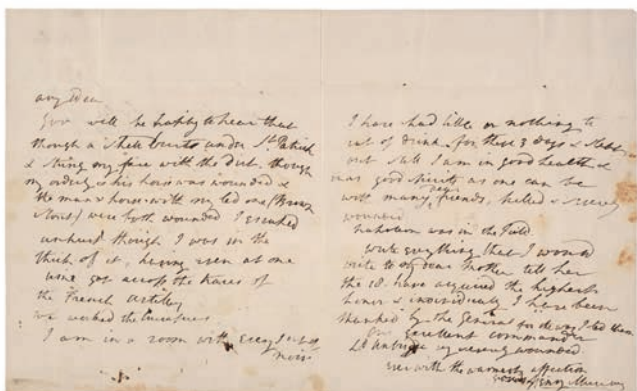 my Dear
You will be happy to hear that
though a shell burst under St. Patrick
& stung my face with the dirt. though
my orderly & his horse was wounded &
the man & horse with my led one (Brown
) were both wounded I escaped
unhurt though I was in the
thick of it, having even at one
time got across the traces of
the French artillery
we
I am in a room with every
noise
I have had little or nothing to
eat or drink for these 3 days & slept
out still I am in good health &
as good spirits as one can be
with many dear friends, killed & severely
wounded
Napoleon was in the Field.
write everything that I would
write to my dear Mother tell her
the 18 have acquired the highest
honor & individually I have been
thanked by the General for the way I led them
Our excellent commander
Ld Uxbridge is severely wounded.
Ever with the warmest affection
yours Henry Murray